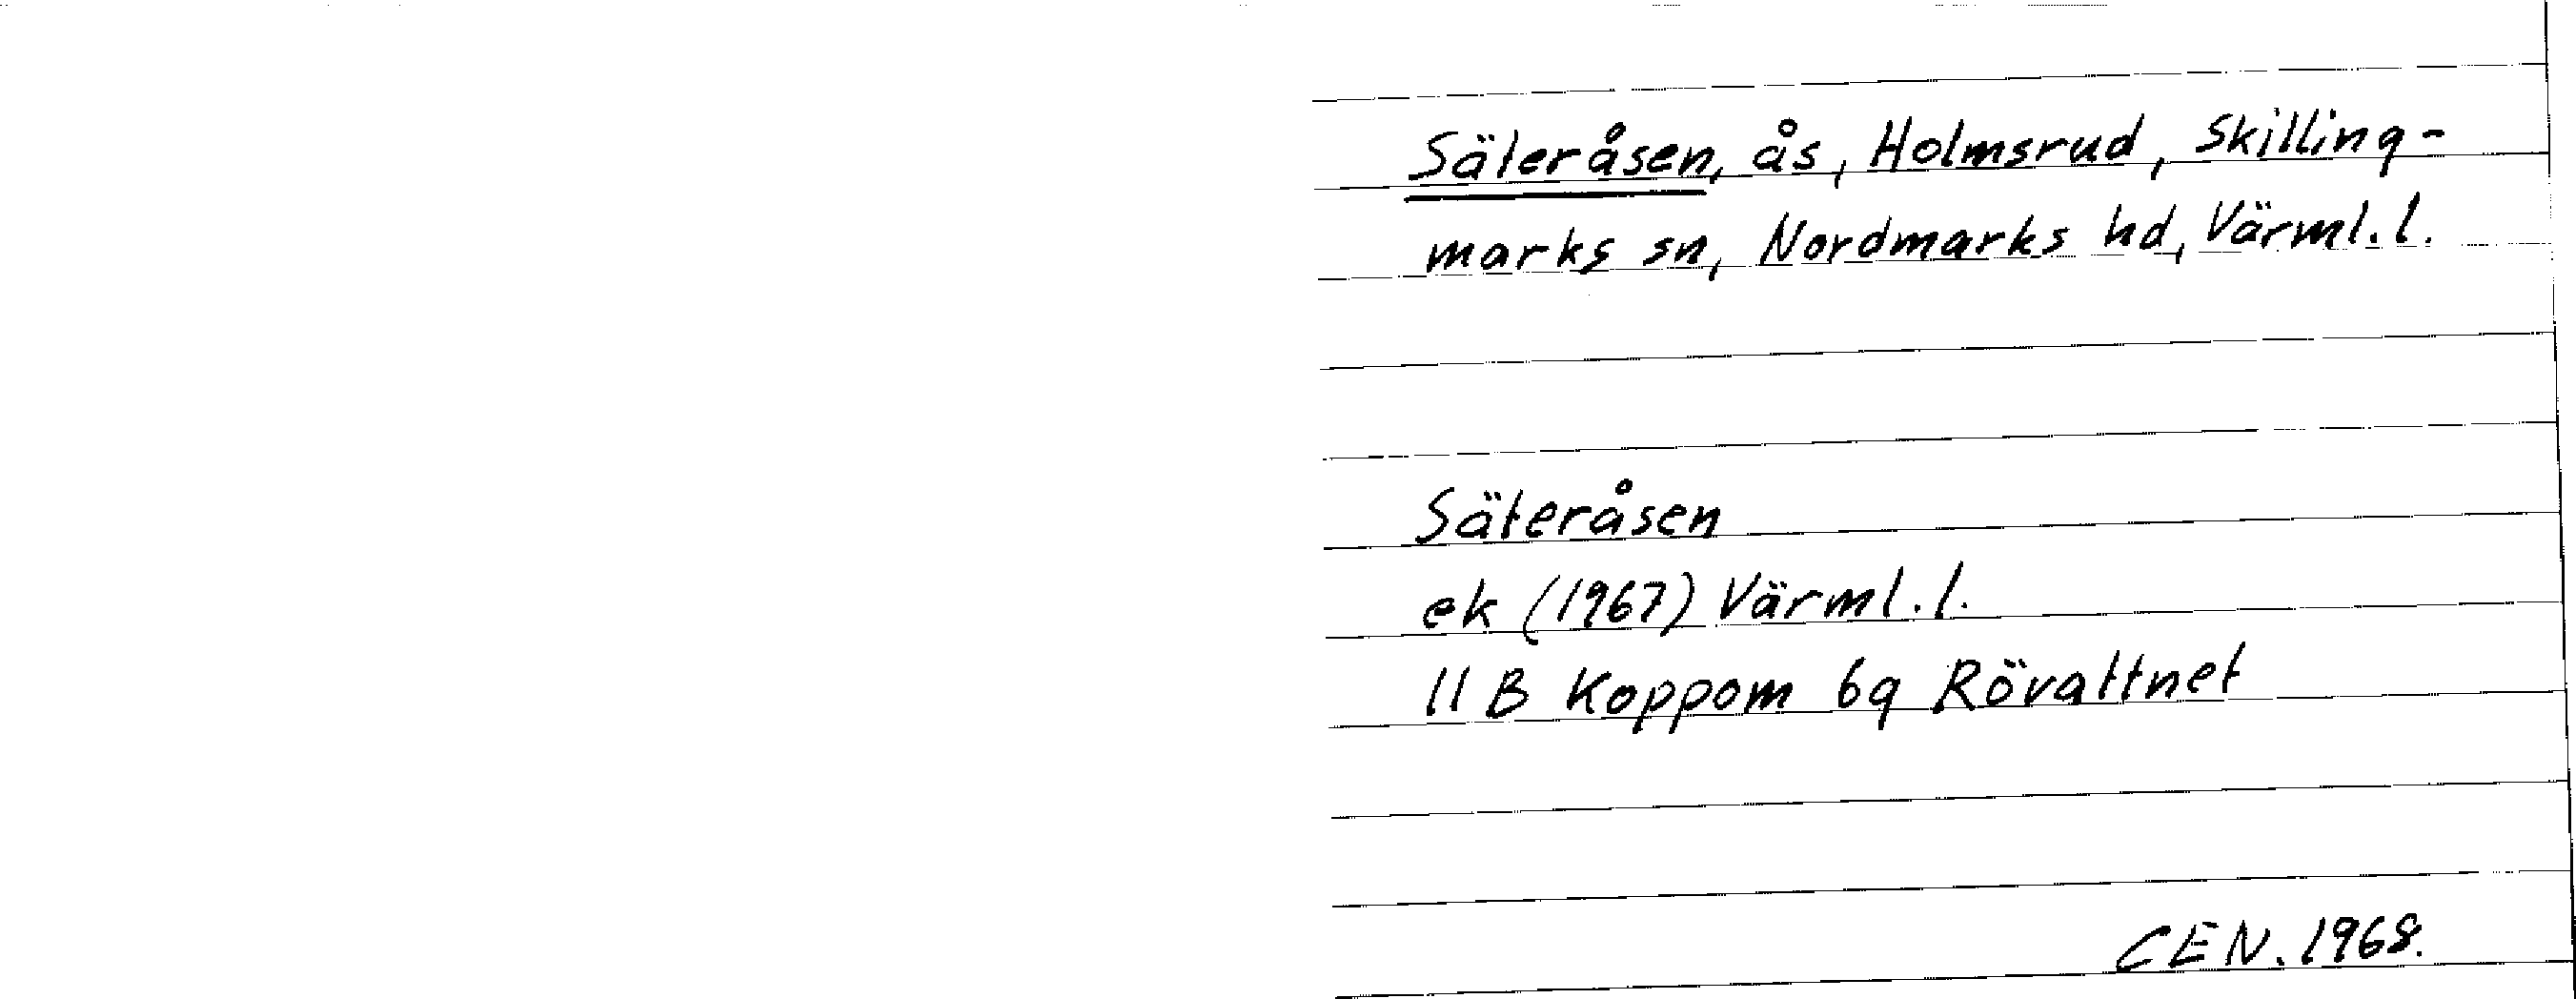 Säteråsen, ås, Holmsrud, Skilling-
marks sn, Nordmarks hd, Värml.l.
Säteråsen
ek (1967) Värml.l.
11 B Koppom 6g Rövattnet
CEN. 1968.